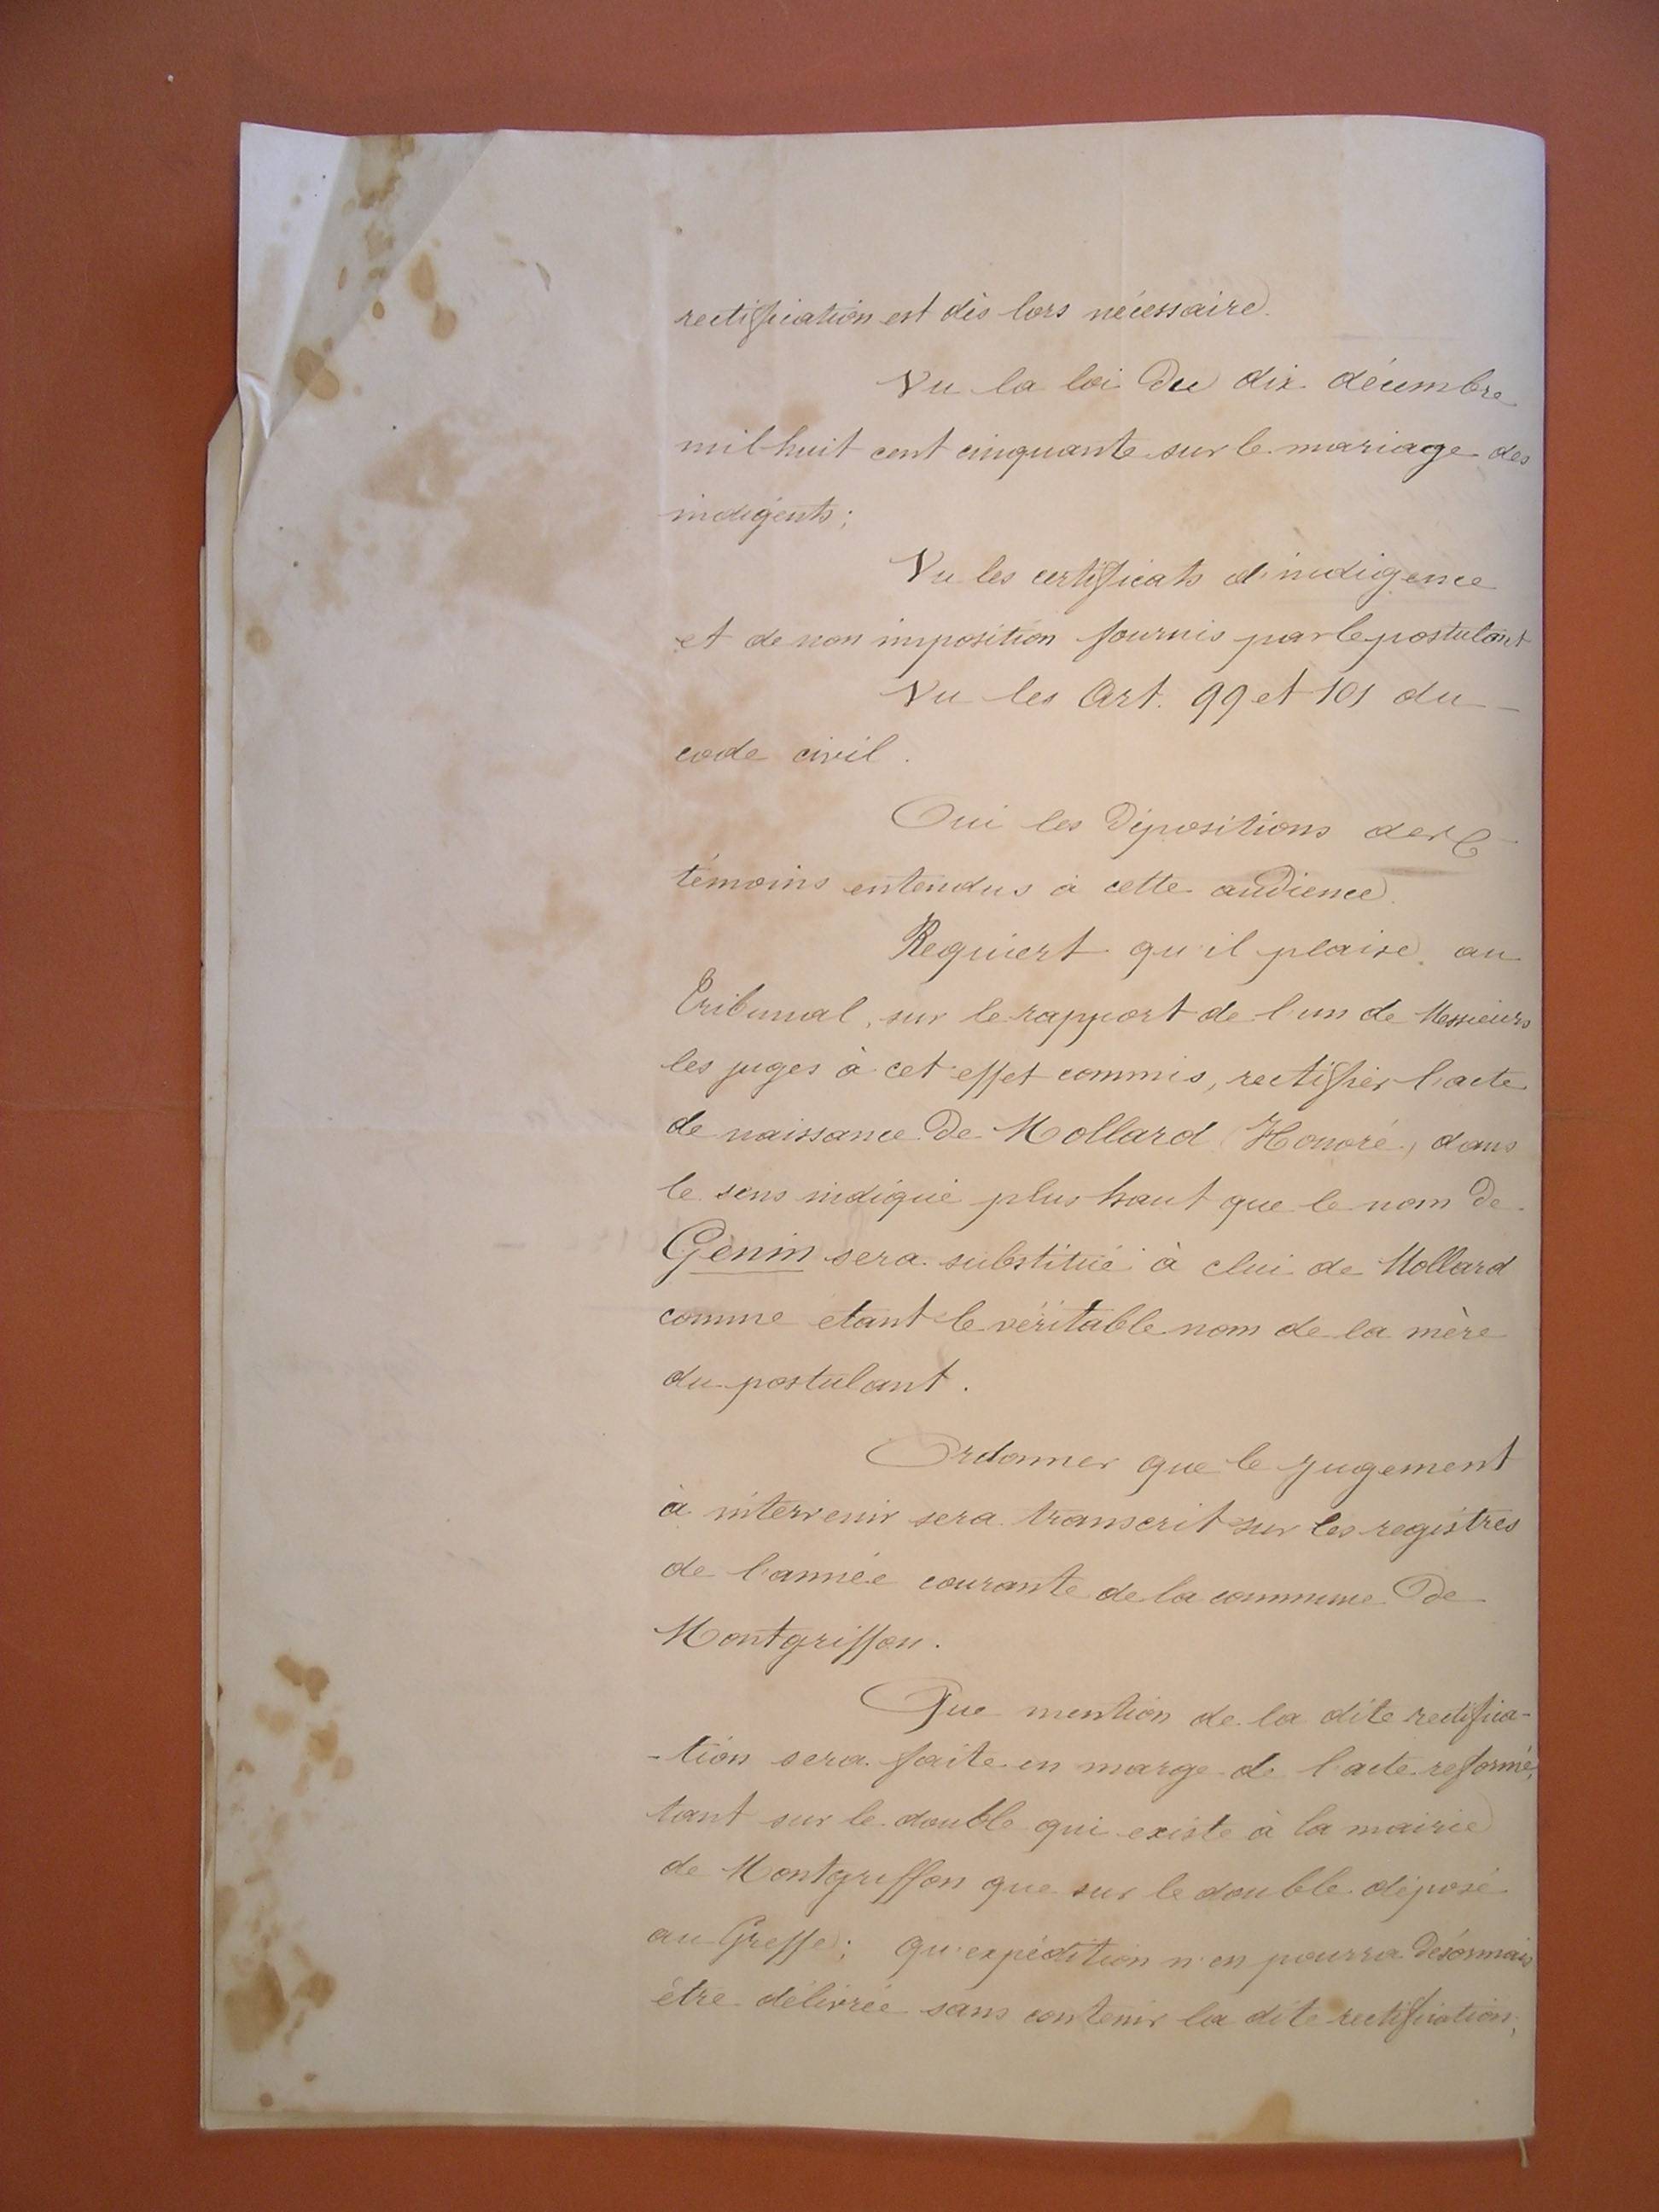 rectification est dès lors nécessaire.
Vu la loi du dix décembre
mil huit cent cinquante sur le mariage des
indigents ;
Vu les certificats d'indigence
et de non imposition fournis par le postulant
Vu les Art. 99 et 101 du
code civil.
Oui les dépositions des
témoins entendus à cette audience.
Requiert qu'il plaise au
Tribunal, sur le rapport de l'un de Messieurs
les juges à cet effet commis, rectifier l'acte
de naissance de Mollard (Honoré, dans
le sens indiqué plus haut que le nom de
Génin sera substitué à clui de Mollard
comme étant le véritable nom de la mère
du postulant.
Ordonner que le jugement
à intervenir sera transcrit sur les registres
de l'année courante de la commune de
Montgriffon.
Que mention de la dite rectifica-
-tion sera faite en marge de l'acte reformé,
tant sur le double qui existe à la mairie
de Montgriffon que sur le double déposé
au Greffe ; qu'expédition n'en pourra désormais
être délivrée sans contenir la dite rectification,